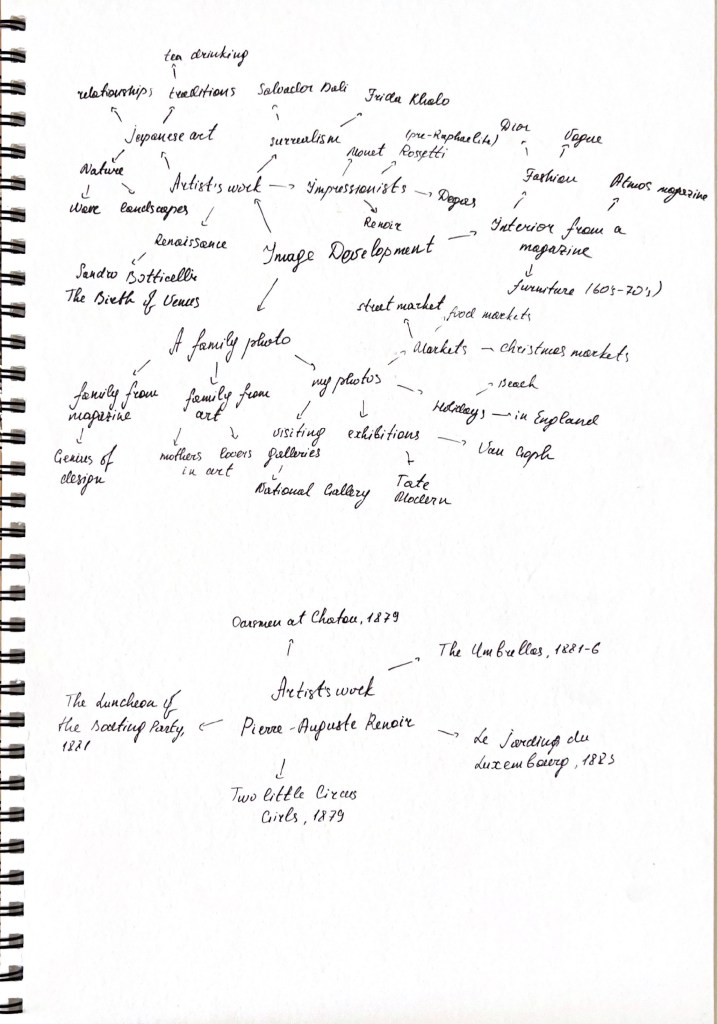 tea drinking
relationships traditions Salvador Dali Frida Khalo
Japanese art surrealism (pre-Raphaelite) Dior Vogue
Monet Rossetti
Nature Artist's work Impressionists Degas Fashion Atmos magazine
Wave landscapes Renoir Interior from a
Renaissance Image Development magazine
Sandro Botticelli furniture (60's-70's)
The Birth of Venus
street market food markets
A family photo Markets - Christmas markets
family from family from my photos Beach
magazine art Holidays - in England
visiting exhibitions
Genius of mothers lovers galleries Van Goph
design in art
National Gallery Tate
Modern
Oarsmen at Chatou, 1879
The Umbrellas, 1881-6
Artist's work
The Luncheon of
the Boating Party, Pierre-Auguste Renoir
1881 Le jarding du
Luxembourg, 1883
Two little Circus
Girls, 1879